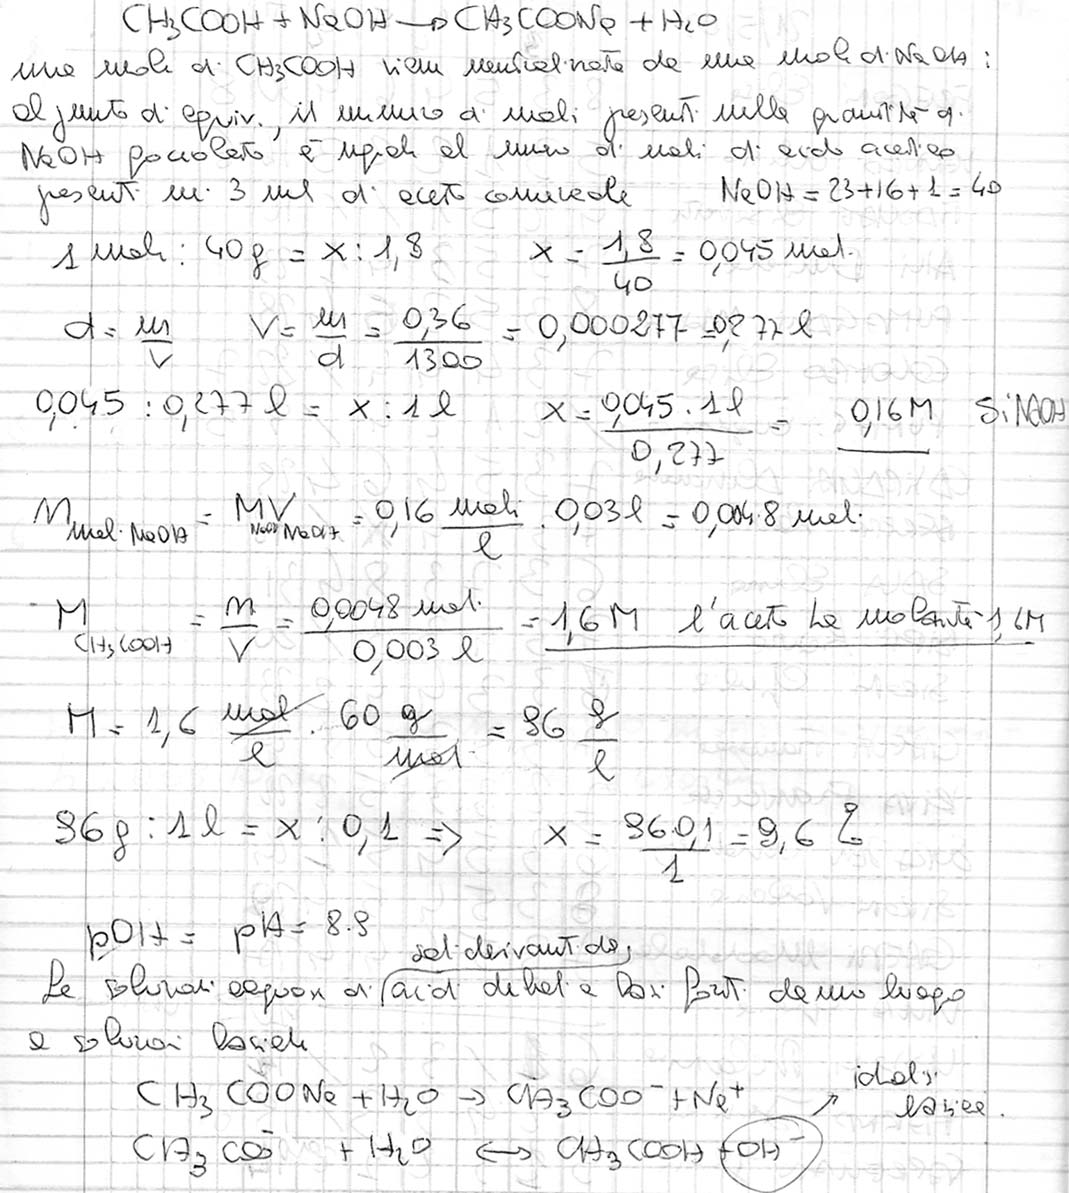 CH3COOH + NaOH → CH3COONa + H2O
una mole di CH3COOH viene neutralizzata da una mole di NaOH :
al punto di equiv., il numero di moli presenti nella quantità di
NaOH gocciolato è uguale al numero di moli di acido acetico
presenti in 3 ml di aceto commerciale NaOH = 23+16+1 = 40
1 mole : 40g = x : 1,8 x = 1,8/40 = 0,045 mol.
d = m/V V = m/d = 0,36/1300 = 0,000277 = 0,277 l
0,045 : 0,277 l = x : 1 l x = 0,045 · 1 l/0,277 = 0,16 M di NaOH
n mol. NaOH = M NaOH V NaOH = 0,16 moli/l · 0,03 l = 0,0048 mol.
M CH3COOH = n/V = 0,0048 mol./0,003 l = 1,6 M l'aceto ha molarità 1,6M
M = 1,6 mol/l · 60 g/mol = 96 g/l
96g : 1 l = x : 0,1 => x = 96·0,1/1 = 9,6
pOH = pH = 8.9
sali derivanti da
Le soluzioni acquose di acidi deboli e basi forti danno luogo
a soluzioni basiche
CH3COONa + H2O → CH3COO⁻ + Na⁺ idrolisi
basica.
CH3COO⁻ + H2O ↔ CH3COOH + OH⁻